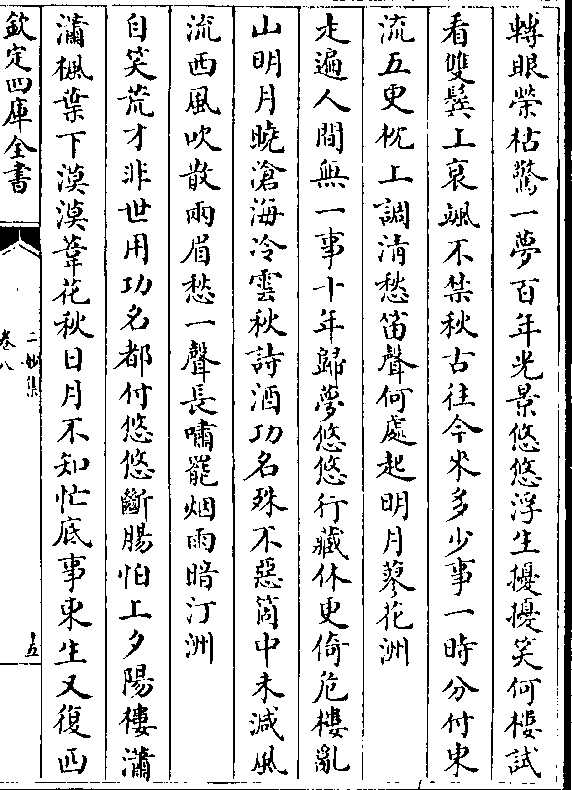 轉眼榮枯驚一夢百年光景悠悠浮生擾擾笑何樓試
看雙鬢上衰颯不禁秋古往今來多少事一時分付東
流五更枕上調清愁笛聲何處起明月蓼花洲
走遍人間無一事十年歸夢悠悠行藏休更倚危樓亂
山明月曉滄海冷雲秋詩酒功名殊不惡箇中未減風
流西風吹散兩眉愁一聲長嘯罷烟雨暗汀洲
自笑荒才非世用功名都付悠悠斷腸怕上夕陽樓瀟
瀟楓葉下漠漠葦花秋日月不知忙底事東生又復西
欽定四庫全書
二妙集
卷八
五